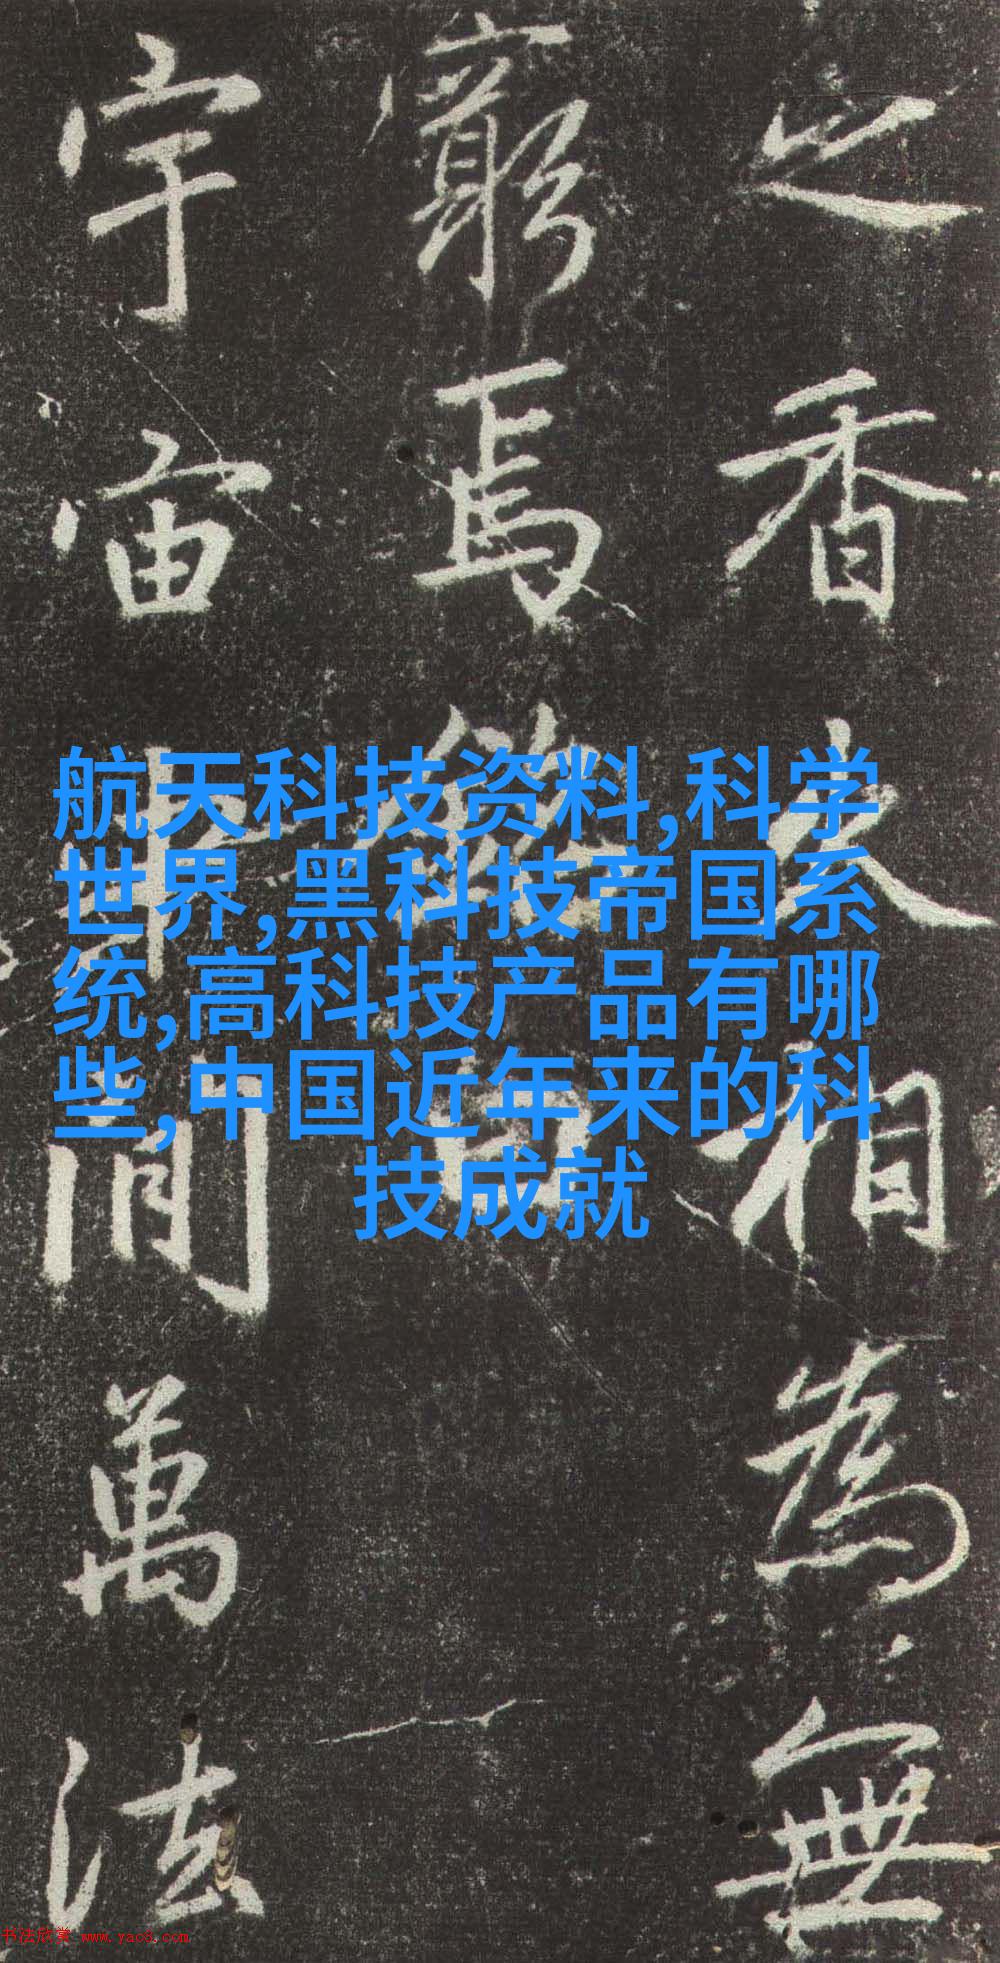 之香火相為無
窮焉
宇宙
間萬法
航天科技资料,科学
世界,黑科技帝国系
统,高科技产品有哪
些,中国近年来的科
技成就
书法欣赏 www.yac8.com